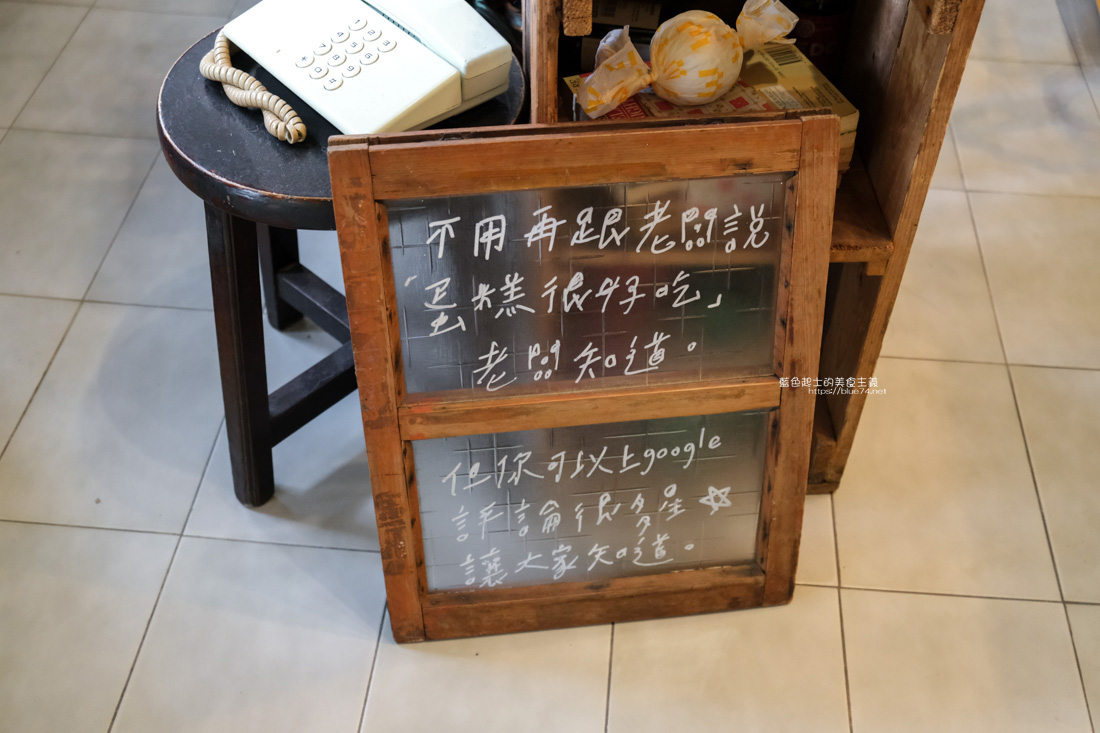 不用再跟老闆說
「蛋糕很好吃」
老闆知道。
但你可以上google
評論很多星☆
讓大家知道。
藍色起士的美食主義
https://blue74.net